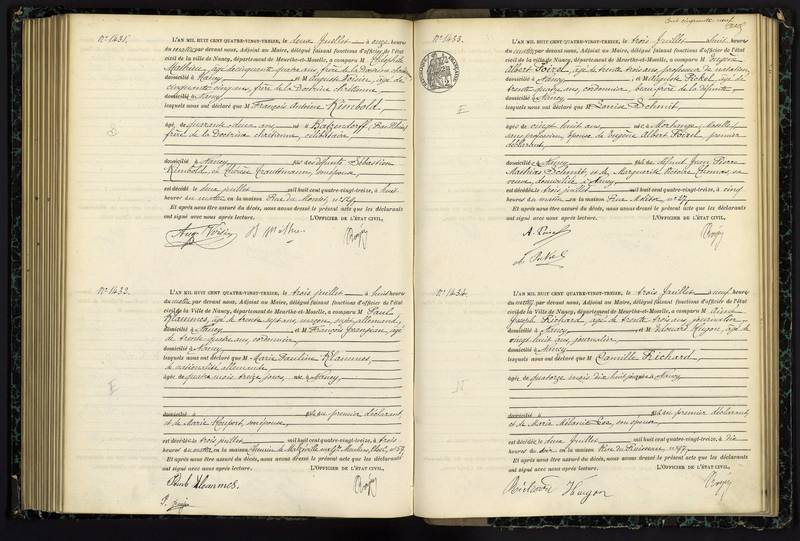 N° 1431.
L'AN MIL HUIT CENT QUATRE-VINGT-TREIZE, le deux Juillet à onze heures
du matin par devant nous, Adjoint au Maire, délégué faisant fonctions d'officier de l'état
civil de la ville de Nancy, département de Meurthe-et-Moselle, a comparu M
Mathieu, âgé de cinquante quatre ans, frère de la Doctrine
domicilié à Nancy et M Auguste Voisin, âgé de
cinquante cinq ans, frère de la Doctrine chrétienne
domicilié à Nancy
lesquels nous ont déclaré que M François Antoine Rimbold
âgé de quarante deux ans né à Batzendorff, (Bas Rhin)
frère de la Doctrine chrétienne, célibataire
domicilié à Nancy fils des défunts Sébastien
Rimbold, et Thérèse Trautmann, son épouse
est décédé le deux juillet mil huit cent quatre-vingt-treize, à huit
heures du matin en la maison Rue de
Et après nous être assuré du décès, nous avons dressé le présent acte que les déclarants
ont signé avec nous après lecture. L'OFFICIER DE L'ÉTAT CIVIL,
Aug Voisin
N° 1432.
L'AN MIL HUIT CENT QUATRE-VINGT-TREIZE, le trois juillet à huit heures
du matin par devant nous, Adjoint au Maire, délégué faisant fonctions d'officier de l'état
civil de la Ville de Nancy, département de Meurthe-et-Moselle, a comparu M Paul
Klammes, âgé de trente sept ans, garçon, sujet allemand
domicilié à Nancy et M François, âgé
de trente quatre ans, cordonnier
domicilié à Nancy
lesquels nous ont déclaré que Marie Pauline Klammes,
de nationalité allemande
âgée de quatre mois treize jours, née à Nancy,
domicilié à fille du premier déclarant,
et de Marie, son épouse
est décédée le trois juillet mil huit cent quatre-vingt-treize, à trois
heures du matin, en la maison Chemin de Malzéville
Et après nous être assuré du décès, nous avons dressé le présent acte que les déclarants
ont signé avec nous après lecture. L'OFFICIER DE L'ÉTAT CIVIL,
Paul Klammes.
Cent cinquante neuf
N° 1433.
L'AN MIL HUIT CENT QUATRE-VINGT-TREIZE, le trois Juillet à huit heures
du matin par devant nous, Adjoint au Maire, délégué faisant fonctions d'officier de l'état
civil de la ville de Nancy, département de Meurthe-et-Moselle, a comparu M Eugène
Albert Poirel, âgé de trente trois ans, professeur de natation
domicilié à Nancy et M, âgé de
trente quatre ans, cordonnier, beau frère de la défunte
domicilié à Nancy
lesquels nous ont déclaré que Louise Schmit,
âgée de vingt huit ans née à Morhange, (Moselle)
sans profession, épouse de Eugène Albert Poirel, premier
déclarant,
domiciliée à Nancy fille de défunt Jean Pierre
Mathias Schmit, et de Marguerite Victoire, sa
veuve, domiciliée à Nancy
est décédée le trois juillet mil huit cent quatre-vingt-treize, à cinq
heures du matin en la maison Rue, n° 27,
Et après nous être assuré du décès, nous avons dressé le présent acte que les déclarants
ont signé avec nous après lecture. L'OFFICIER DE L'ÉTAT CIVIL,
N° 1434.
L'AN MIL HUIT CENT QUATRE-VINGT-TREIZE, le trois Juillet à neuf heures
du matin, par devant nous, Adjoint au Maire, délégué faisant fonctions d'officier de l'état
civil de la Ville de Nancy, département de Meurthe-et-Moselle, a comparu M Aimé
Joseph Richard, âgé de trente trois ans, journalier
domicilié à Nancy et M Edouard Hugon, âgé de
vingt huit ans, journalier
domicilié à Nancy
lesquels nous ont déclaré que Camille Richard,
âgé de quatorze mois dix huit jours né à Nancy
domicilié à fils du premier déclarant,
et de Marie Mélanie, son épouse
est décédé le deux Juillet mil huit cent quatre-vingt-treize, à dix
heures du soir en la maison Rue
Et après nous être assuré du décès, nous avons dressé le présent acte que les déclarants
ont signé avec nous après lecture. L'OFFICIER DE L'ÉTAT CIVIL,
Hugon